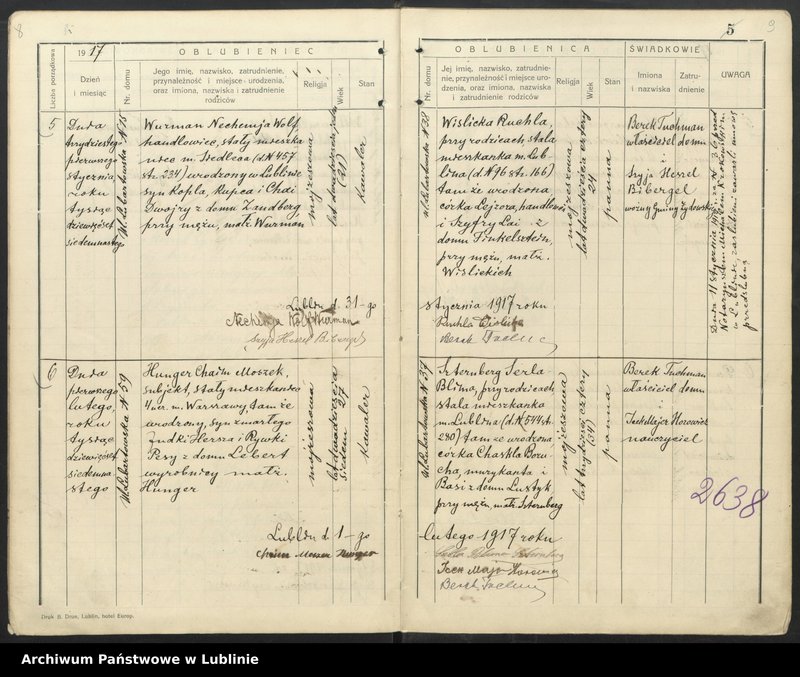 8
5
9
1917
OBLUBIENIEC
OBLUBIENICA
ŚWIADKOWIE
UWAGA
Liczba porządkowa
Dzień
i miesiąc
Nr. domu
Jego imię, nazwisko, zatrudnienie,
przynależność i miejsce urodzenia,
oraz imiona, nazwiska i zatrudnienie
rodziców
Religja
Wiek
Stan
Nr. domu
Jej imię, nazwisko, zatrudnie-
nie, przynależność i miejsce uro-
dzenia, oraz imiona, nazwiska
i zatrudnienie rodziców
Religja
Wiek
Stan
Imiona
i nazwiska
Zatru-
dnienie
5
Dnia
trzydziestego
pierwszego
stycznia
roku
tysiąc
dziewięćset
siedemnastego
ul. Lubartowska N 15
Wurman Nechemja Wolf,
handlowiec, stały mieszka
niec m. Siedlcca (d. N 457
str. 234) urodzony w Lublinie
syn Kopla, kupca i Chai
Dwojry z domu Zandberg
przy mężu, małż. Wurman
mojżeszowa
(31)
kawaler
Lublin d. 31-go
Nechemja Wolf Wurman
Szyja Hersel Bibergel
ul. Lubartowska N 38
Wislicka Ruchla,
przy rodzicach, stała
mieszkanka m. Lub-
lina (d. N 968 str. 166)
tamże urodzona
córka Lejzora, handlowca
i Szyfry Lai z
domu Finkelsztein,
przy mężu, małż.
Wislickich
mojżeszowa
lat dwadzieścia cztery
24
panna
stycznia 1917 roku
Ruchla Wislicka
Berek Tuchman
Berek Tuchman
właściciel domu
i
Szyja Hersel
Bibergel
woźny Gminy Żydowskiej
Dnia 11 stycznia 1917 r. za N 3 przed
Notaryuszem
w Lublinie, zaślubieni zawarli umowę
przedślubną
6
Dnia
pierwszego
lutego,
roku
tysiąc
dziewięćset
siedemna
stego
ul. Lubartowska N 59
Hunger Chaim Moszek,
subjekt, stały mieszkaniec
4 cyr. m. Warszawy, tamże
urodzony, syn zmarłego
Judki Hersza i Rywki
Pesy z domu Lobert
wyrobnicy małż.
Hunger
mojżeszowa
lat dwadzieścia
siedem 27
kawaler
Lublin d. 1-go
Chaim Moszek Hunger
ul. Lubartowska N 37
Szternberg Serla-
Blima, przy rodzicach
stała mieszkanka
m. Lublina (d. N 544 str.
280) tamże urodzona
córka Charkla Boru
cha, muzykanta i
Basi z domu Lustyk,
przy mężu, małż. Szternberg
mojżeszowa
lat trzydzieści cztery
(34)
panna
lutego 1917 roku
Icek Majer Horowicz
Berek Tuchman
Berek Tuchman
właściciel domu
i
Icek Majer Horowicz
nauczyciel
2638
Druk B. Drue, Lublin, hotel Europ.
Archiwum Państwowe w Lublinie